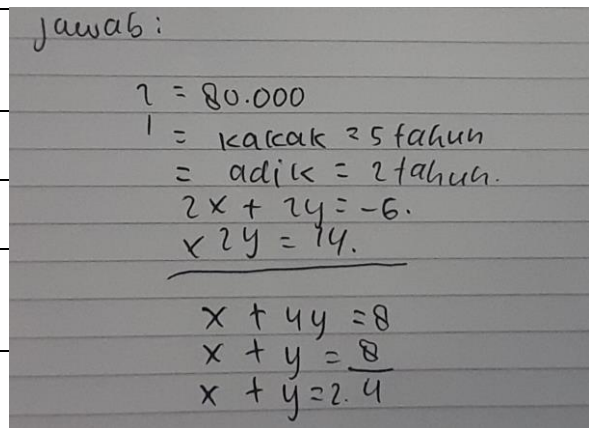 Jawab :
2 = 80.000
1 = kakak = 5 tahun
= adik = 2 tahun.
2x + 2y = -6.
x 2y = 14.
x + 4y = 8
x + y = 8
x + y = 2.4